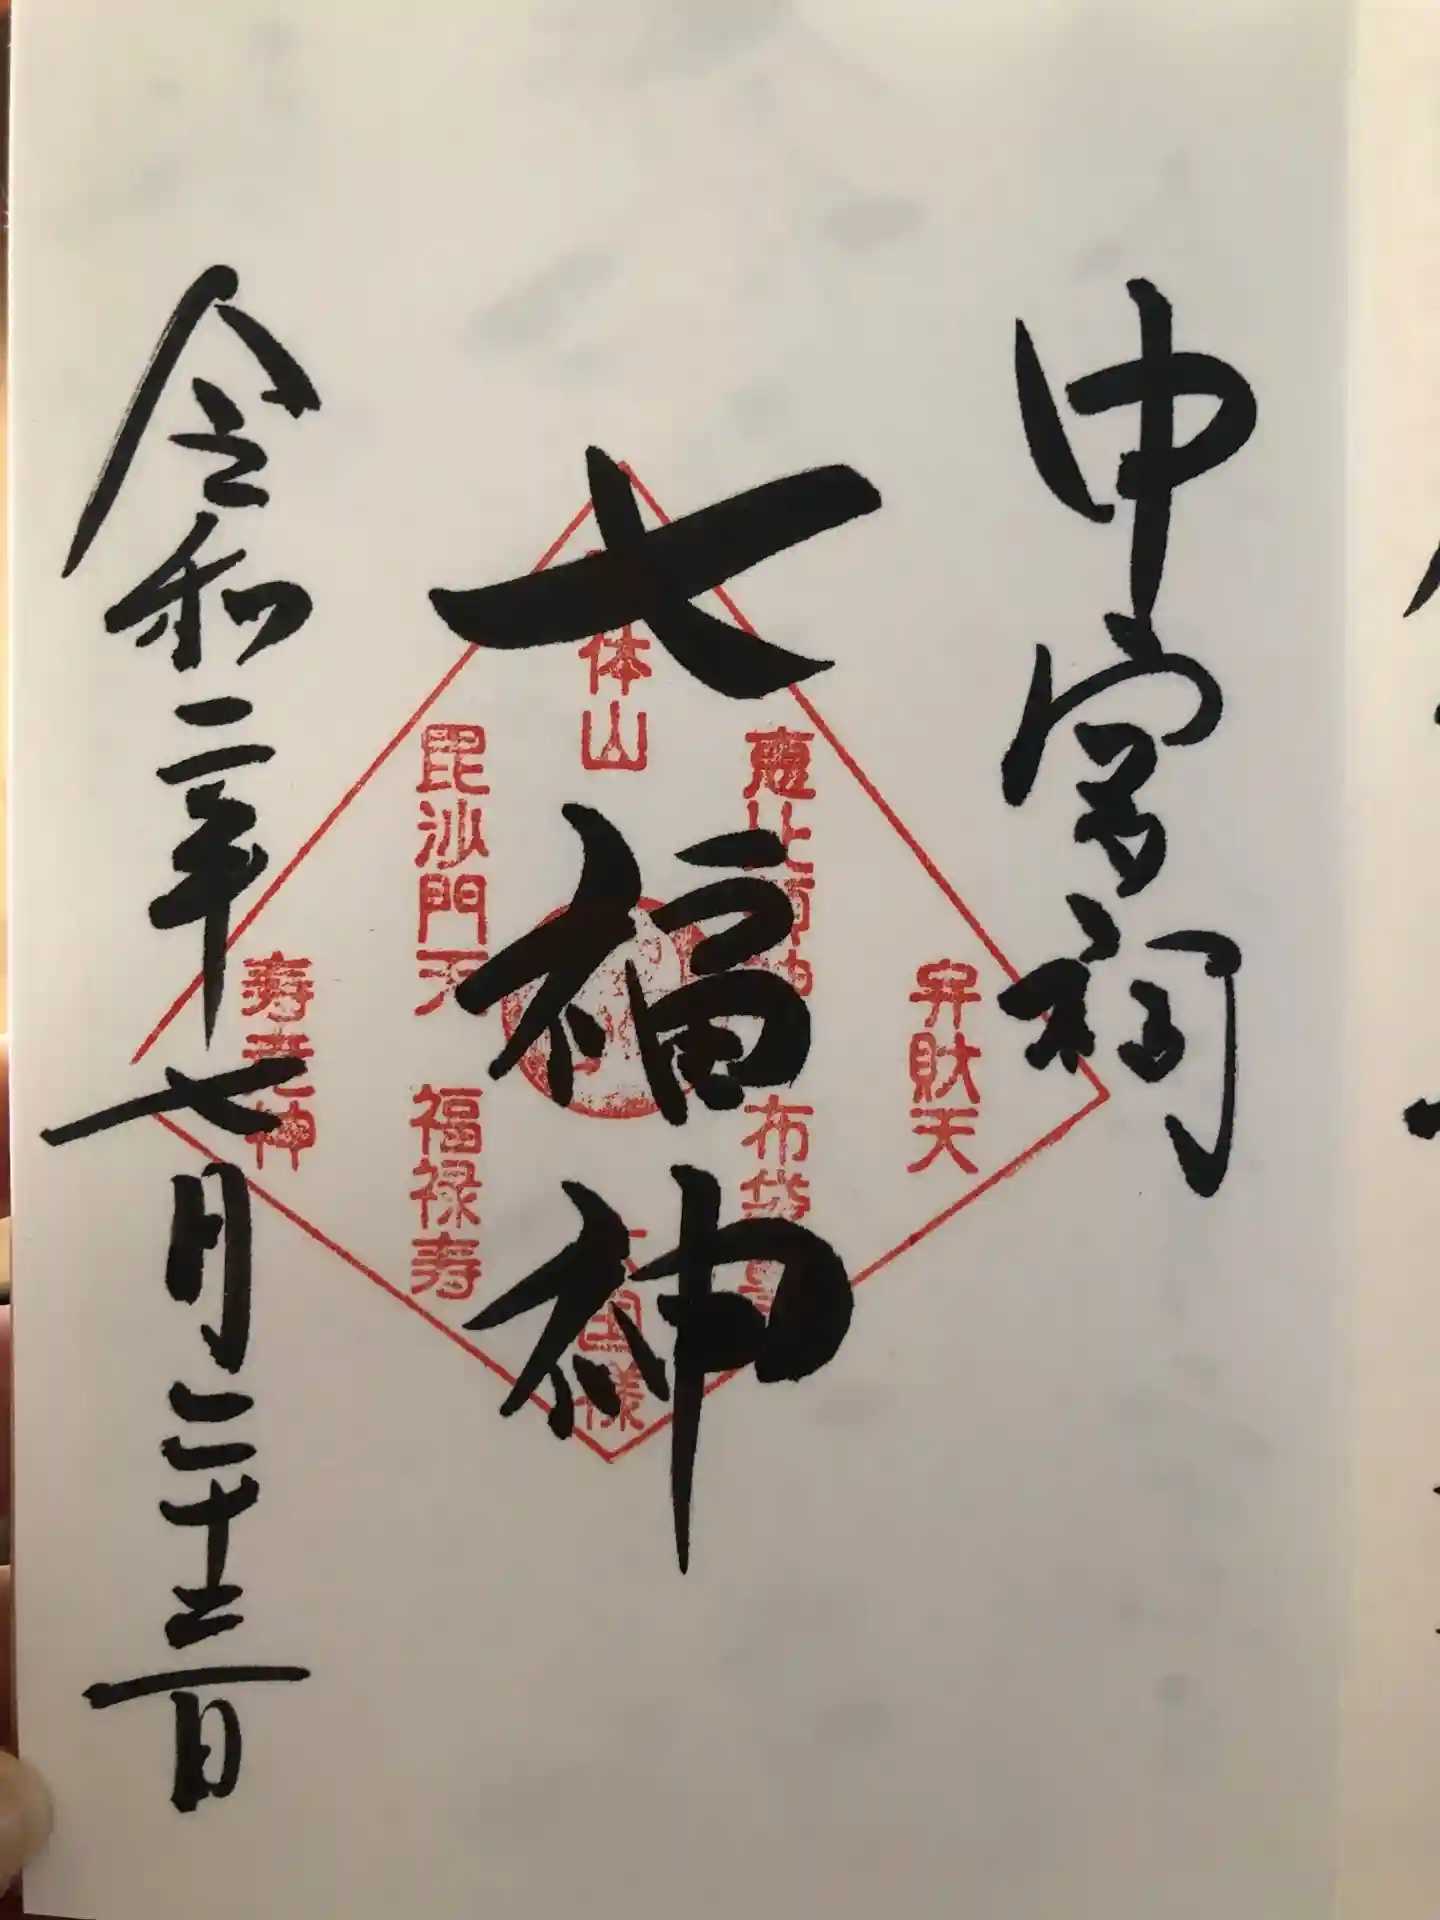 中宮祠
七福神
令和二年七月二十三日
弁財天
布袋
体山
国様
毘沙門天
福禄寿
寿老神